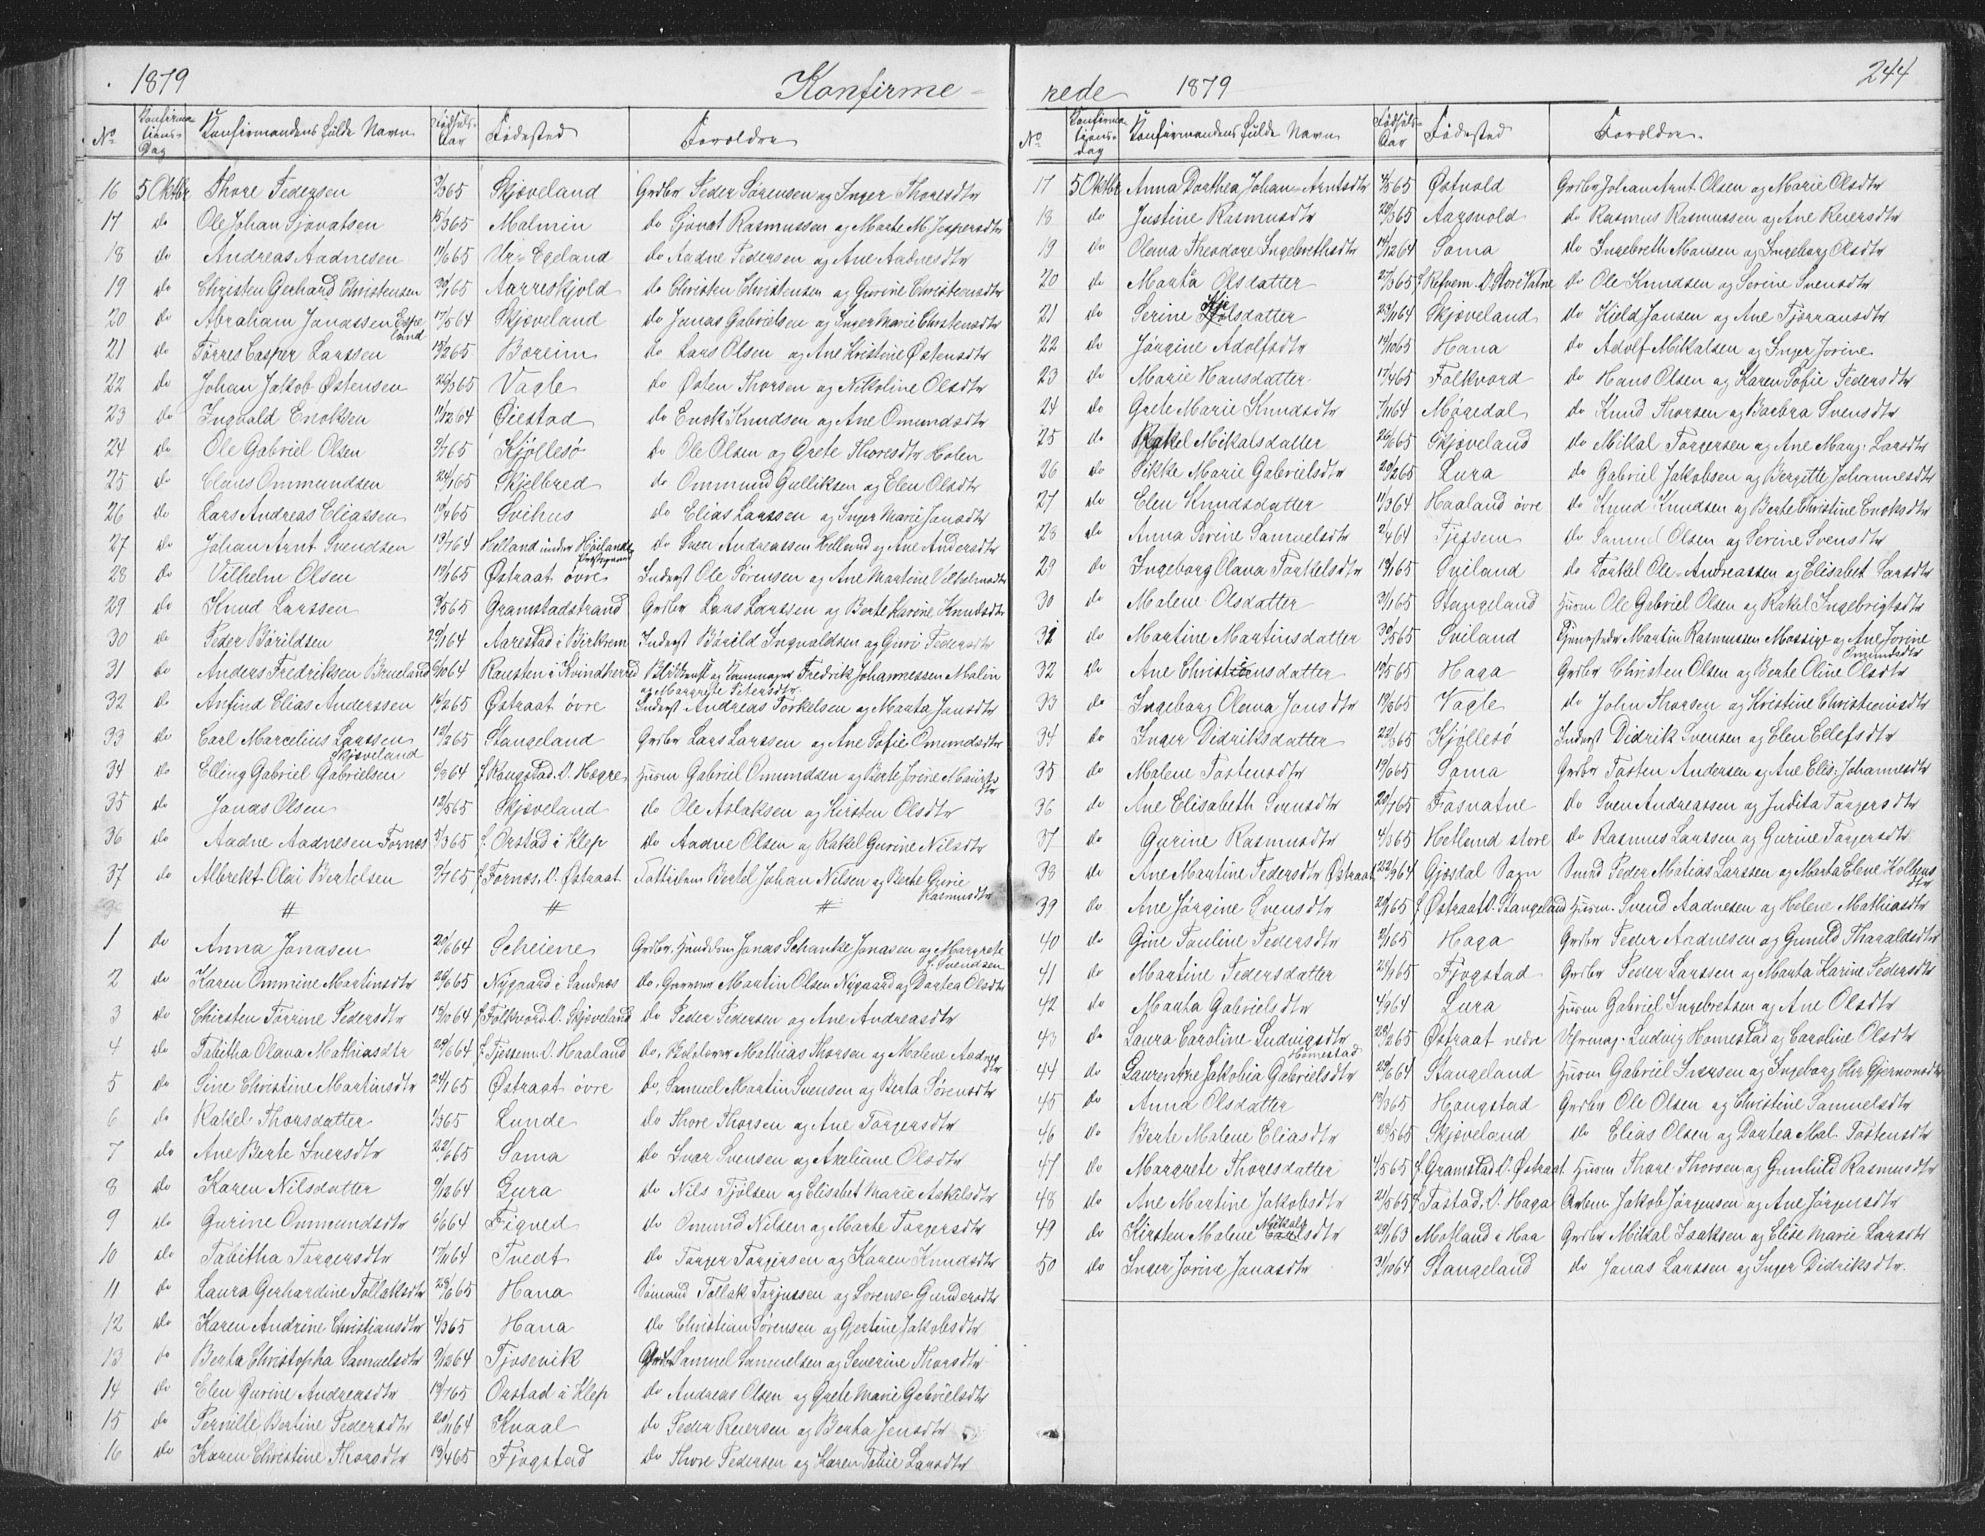 1879 Konfirme-
No Konfirmationsdag Konfirmandens fulde Navn Fødselsaar Fødested Forældre
16 5 Oktbr Thore Pedersen 65 Skjæveland Grdbr Peder Sørensen og Inger Thorsdtr
17 do Ole Johan Sjovatsen 15/3 65 Malmin do Sjovat Rasmussen og Marte M. Jespersdtr
18 do Andreas Aadnesen 11/6 65 Ur. Egeland do Aadne Pedersen og Ane Aadnesdtr
19 do Christen Gerhard Christensen 30/1 65 Aarreskjold do Christen Christensen og Gurine Christensdtr
20 do Abraham Jonassen Espeland 17/5 64 Skjæveland do Jonas Gabrielsen og Inger Marie Christensdtr
21 do Tørres Casper Larssen 13/2 65 Bæreim do Lars Olsen og Ane Kristine Østensdtr
22 do Johan Jakob Østensen 22/3 65 Vagle do Østen Thorsen og Nikoline Olsdtr
23 do Ingvald Enoksen 11/12 64 Øiestad do Enok Knudsen og Ane Omundsdtr
24 do Ole Gabriel Olsen 65 Kjøllesø do Ole Olsen og Grete Thoresdtr Holen
25 do Claus Ommundsen 24/1 65 Skjelbred do Ommund Gulliksen og Elen Olsdtr
26 do Lars Andreas Eliassen 19/4 65 Svihus do Elias Larssen og Inger Marie Jonsdtr
27 do Johan Arnt Svendsen 19/7 64 Helland under Høilands Præstegjæld do Sven Andreassen Helland og Ane Andersdtr
28 do Vilhelm Olsen 19/1 65 Østraat øvre Inderst Ole Sørensen og Ane Martine Vilhelmsdtr
29 do Knud Larssen 65 Gramstadstrand Grdbr Lars Larssen og Berte Karine Knudsdtr
30 do Peder Børildsen 29/1 64 Aarestad i Birkrem Inderst Børild Ingvaldsen og Guri Pedersdtr
31 do Anders Fredriksen Brueland 64 Rausten i Kvindherred Fredrik Johannessen Malin og Margrete Petersdtr
32 do Anfind Elias Anderssen 65 Østraat øvre Inderst Andreas Torkelsen og Marta Jonsdtr
33 do Carl Marcelius Larssen 12/2 65 Stangeland Grdbr Lars Larssen og Ane Sofie Omundsdtr
34 do Elling Gabriel Gabrielsen Skjæveland 64 f. Haugstad. O. Høgre Husm Gabriel Omundsen og Berte Jorine Mauritsdtr
35 do Jonas Olsen 12/5 65 Skjæveland do Ole Aslaksen og Kirsten Olsdtr
36 do Aadne Aadnesen Fornæs 5/3 65 f. Orstad i Klep do Aadne Olsen og Rakel Gurine Nilsdtr
37 do Albrekt Olai Bertelsen 65 f. Fornæs. O. Østraat Fattiglem Bertel Johan Nilsen og Berte Gurie Rasmusdtr
# # #
1 do Anna Jonasen 20/6 64 Scheiene Grdbr, Jonas Schanke Jonasen og Margrete f. Svendsen
2 do Karen Ommine Martinsdtr 65 Nygaard i Sandnæs do, Martin Olsen Nygaard og Dortea Olsdtr
3 do Chirsten Torrine Pedersdtr 19/10 64 f. Folkvord. O. Skjæveland do Peder Pedersen og Ane Andreasdtr
4 do Tabitha Olava Mathiasdtr 28/6 64 f. Tjessem. O. Haaland do, Mathias Thorsen og Malene Aadnesdtr
5 do Sine Christine Martinsdtr 24/1 65 Østraat øvre do, Samuel Martin Svensen og Berta Sørensdtr
6 do Rakel Thorsdatter 1/3 65 Lunde do Thore Thorsen og Ane Torgersdtr
7 do Ane Berte Iversdtr 22/6 65 Soma do Ivar Svensen og Axeliane Olsdtr
8 do Karen Nilsdatter 9/12 64 Lura do Nils Tjølsen og Elisabet Marie Askildsdtr
9 do Gurine Ommundsdtr 6/6 64 Figved do Omund Nilsen og Marte Torgersdtr
10 do Tabitha Torgersdtr 17/11 64 Tvedt do Torger Torgersen og Karen Knudsdtr
11 do Laura Gerhardine Tollaksdtr 25/6 65 Hana Sømand Tollak Torjussen og Lorense Gundersdtr
12 do Karen Andrine Christiansdtr 4/3 65 Hana do Christian Sørensen og Gjertine Jakobsdtr
13 do Berta Christopha Samuelsdtr 9/12 64 Tjosevik Grdbr Samuel Samuelsen og Severine Thorsdtr
14 do Elen Gurine Andreasdtr 19/1 65 Orstad i Klep do Andreas Olsen og Grete Marie Gabrielsdtr
15 do Pernille Bertine Pedersdtr 20/11 64 Kvaal do Peder Reiersen og Berta Jensdtr
16 do Karen Christine Thorsdtr 13/4 65 Fjogstad do Thore Pedersen og Karen Tobie Larsdtr
rede 1879 244
No Konfirmationsdag Konfirmandens fulde Navn Fødselsaar Fødested Forældre
17 5 Oktbr Anna Dorthea Johan-Arntsdtr 65 Østvold Grdbr Johan Arnt Olsen og Marie Olsdtr
18 do Justine Rasmusdtr 28/3 65 Aarsvold do Rasmus Rasmussen og Ane Reiersdtr
19 do Olena Theodore Ingebrethsdtr 19/12 64 Soma do Ingebreth Monsen og Ingeborg Olsdtr
20 do Marta Olsdatter 27/3 65 f. Refvem. O. Store Vatne do Ole Knudsen og Serine Svensdtr
21 do Serine Kjelsdatter 23/11 64 Skjæveland do Kield Jonsen og Ane Fjørransdtr
22 do Jørgine Adolfsdtr 65 Hana do Adolf Mikalsen og Inger Jorine
23 do Marie Hansdatter 17/4 65 Folkvord do Hans Olsen og Karen Sofie Pedersdtr
24 do Grete Marie Knudsdtr 7/11 64 Møgedal do Knud Thorsen og Barbra Svensdtr
25 do Rakel Mikalsdatter 26/1 65 Skjæveland do Mikal Torgersen og Ane Marg: Larsdtr
26 do Rikke Marie Gabrielsdtr 20/2 65 Lura do Gabriel Jakobsen og Bergitte Johannesdtr
27 do Elen Knudsdatter 11/3 64 Haaland øvre do Knud Knudsen og Berte Christine Enoksdtr
28 do Anna Serine Samuelsdtr 2/4 64 Tjessem do Samuel Olsen og Serine Svensdtr
29 do Ingeborg Olava Torkelsdtr 19/1 65 Sviland do Torkel Ole-Andreassen og Elisabet Larsdtr
30 do Malene Olsdatter 31/1 65 Stangeland Husm Ole Gabriel Olsen og Rakel Ingebrigtsdtr
31 do Martine Martinsdatter 30/5 65 Sviland Martin Rasmussen Mossige og Ane Jorine Omundsdtr
32 do Ane Christensdatter 19/5 65 Haga Grdbr Christen Olsen og Berte Oline Olsdtr
33 do Ingeborg Olena Jonsdtr 65 Vagle do John Thorsen og Kristine Christiansdtr
34 do Inger Didriksdatter 22/1 65 Kjøllesø Inderst Didrik Svensen og Elen Ellefsdtr
35 do Malene Tostensdtr 19/6 65 Soma Grdbr Tosten Andersen og Ane Elis: Johannesdtr
36 do Ane Elisabeth Svensdtr 20/1 65 Fosvatne do Sven Andreassen og Judita Torgersdtr
37 do Gurine Rasmusdtr 4/3 65 Hetland store do Rasmus Larssen og Gurine Torgersdtr
38 do Ane Martine Pedersdtr Østraat 22/9 64 Gjesdal Sogn Smed Peder Matias Larssen og Marta Elene Kolbensdtr
39 do Ane Jørgine Svensdtr 65 f. Østraat O. Stangeland Husm. Svend Aadnesen og Helene Mathiasdtr
40 do Gine Pauline Pedersdtr 65 Haga Grdbr Peder Aadnesen og Gunild Tharaldsdtr
41 do Martine Pedersdatter 65 Fjogstad Grdbr Peder Larssen og Marta Karine Pedersdtr
42 do Marta Gabrielsdtr 4/9 64 Lura Husm Gabriel Ingebretsen og Ane Olsdtr
43 do Laura Caroline Ludvigsdtr Homestad 28/2 65 Østraat nedre Uhrmag. Ludvig Homestad og Caroline Olsdtr
44 do Laurentse Jakobia Gabrielsdtr 29/6 64 Stangeland Husm Gabriel Iversen og Ingeborg Chr Gjermunsdtr
45 do Anna Olsdatter 19/3 65 Hjaugstad Grdbr Ole Olsen og Christine Samuelsdtr
46 do Berte Malene Eliasdtr 65 Skjæveland do Elias Olsen og Dortea Mal. Tostensdtr
47 do Margrete Thoresdatter 4/5 65 f. Gramstad. O. Østraat Husm Thore Thorsen og Gunhild Rasmusdtr
48 do Ane Martine Jakobsdtr 21/5 65 f. Tastad. O. Haga Arbm. Jakob Jørgensen og Ane Jørgensdtr
49 do Kirsten Malene Mikalsdtr 29/1 63 Motland i Haa Grdbr Mikal Isaksen og Elise Marie Larsdtr
50 do Inger Jorine Jonasdtr 31/10 64 Stangeland do Jonas Larssen og Inger Didriksdtr.